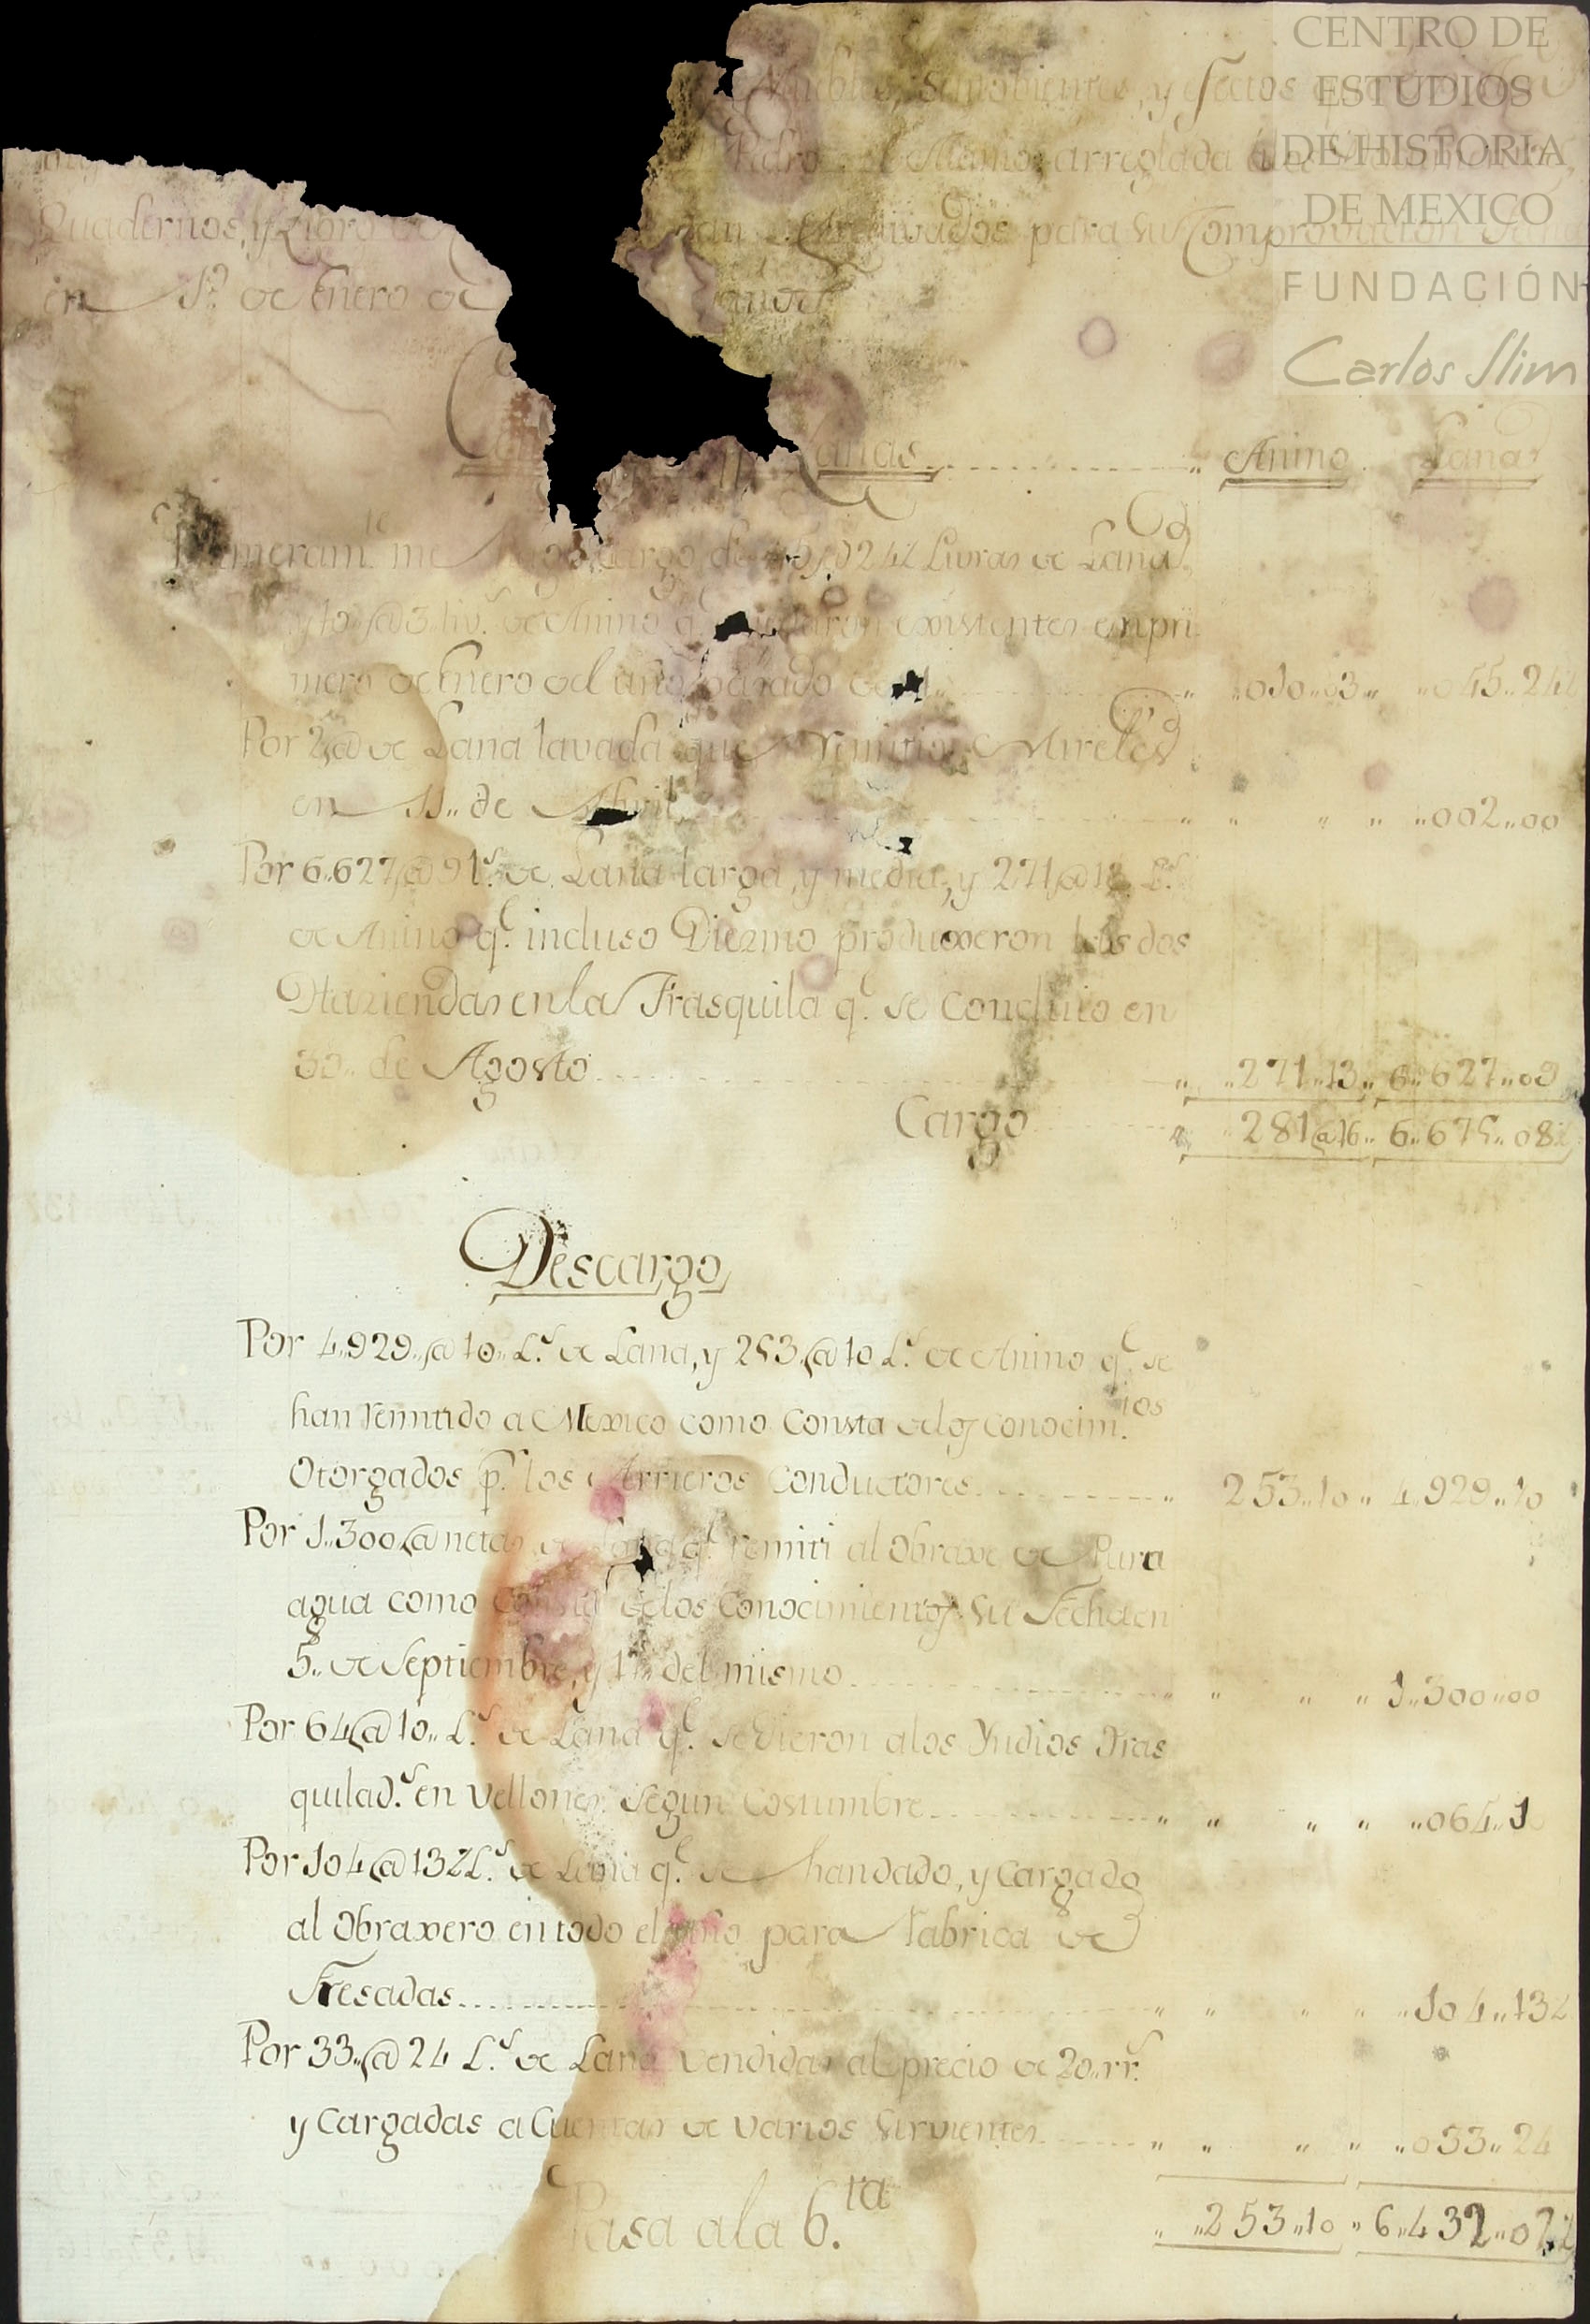 CENTRO DE
ESTUDIOS
DE HISTORIA
DE MEXICO
FUNDACIÓN
Carlos Slim
Muebles, Semobientes, y efectos
Pedro del Alamo arreglada á los
Quadernos, y Libro para su Comprovacion
en 1º de Enero de
Lanas Anino Lana
Primeram.te me hago cargo de Livras de Lana,
de Anino q.e quedaron existentes en pri
mero de Enero del año pasado de ,,010,,03,, ,,045,,24½
Por 2@ de Lana lavada que remitio Mireles
en 11,, de Abril ,, ,, ,, ,,002,,00
Por 6,,627,@ 9 l.s de Lana larga, y media, y 271,@ 13 L.s
de Anino q.e incluso Diezmo produxeron las dos
Haziendas en la Trasquila q.e se concluio en
30,, de Agosto ,, ,,271,,13,, 6,,627,,09
Cargo ,, 281@16,, 6,,675,,08½
Descargo
Por 4,,929,,@ 10,, L.s de Lana, y 253,@ 10 L.s de Anino q.e se
han remitido a Mexico como Consta delos conocim.tos
Otorgados p.r los Arrieros Conductores ,, 253,,10,, 4,,929,,10
Por 1,,300,@ netas de Lana q.e remiti al Obraxe de Para
agua como Consta delos Conocimientos su Fecha en
5,, de Septiembre, y 17,, del mismo ,, ,, ,, ,, 1,,300,,00
Por 64@ 10,, L.s de Lana q.e se dieron a los Yndios Tras
quilad.s en Vellones segun Costumbre ,, ,, ,, ,, ,,064,,10
Por 104@ 13½ L.s de Lana q.e se han dado, y Cargado
al Obraxero en todo el año para fabrica de
Fresadas ,, ,, ,, ,, ,,104,,13½
Por 33,,@ 24 L.s de Lana vendidas al precio de 20,, rr.s
y Cargadas a Cuentas de varios Sirvientes ,, ,, ,, ,, ,,033,,24
Pasa ala 6.ta ,, ,,253,,10,, 6,,432,,07½